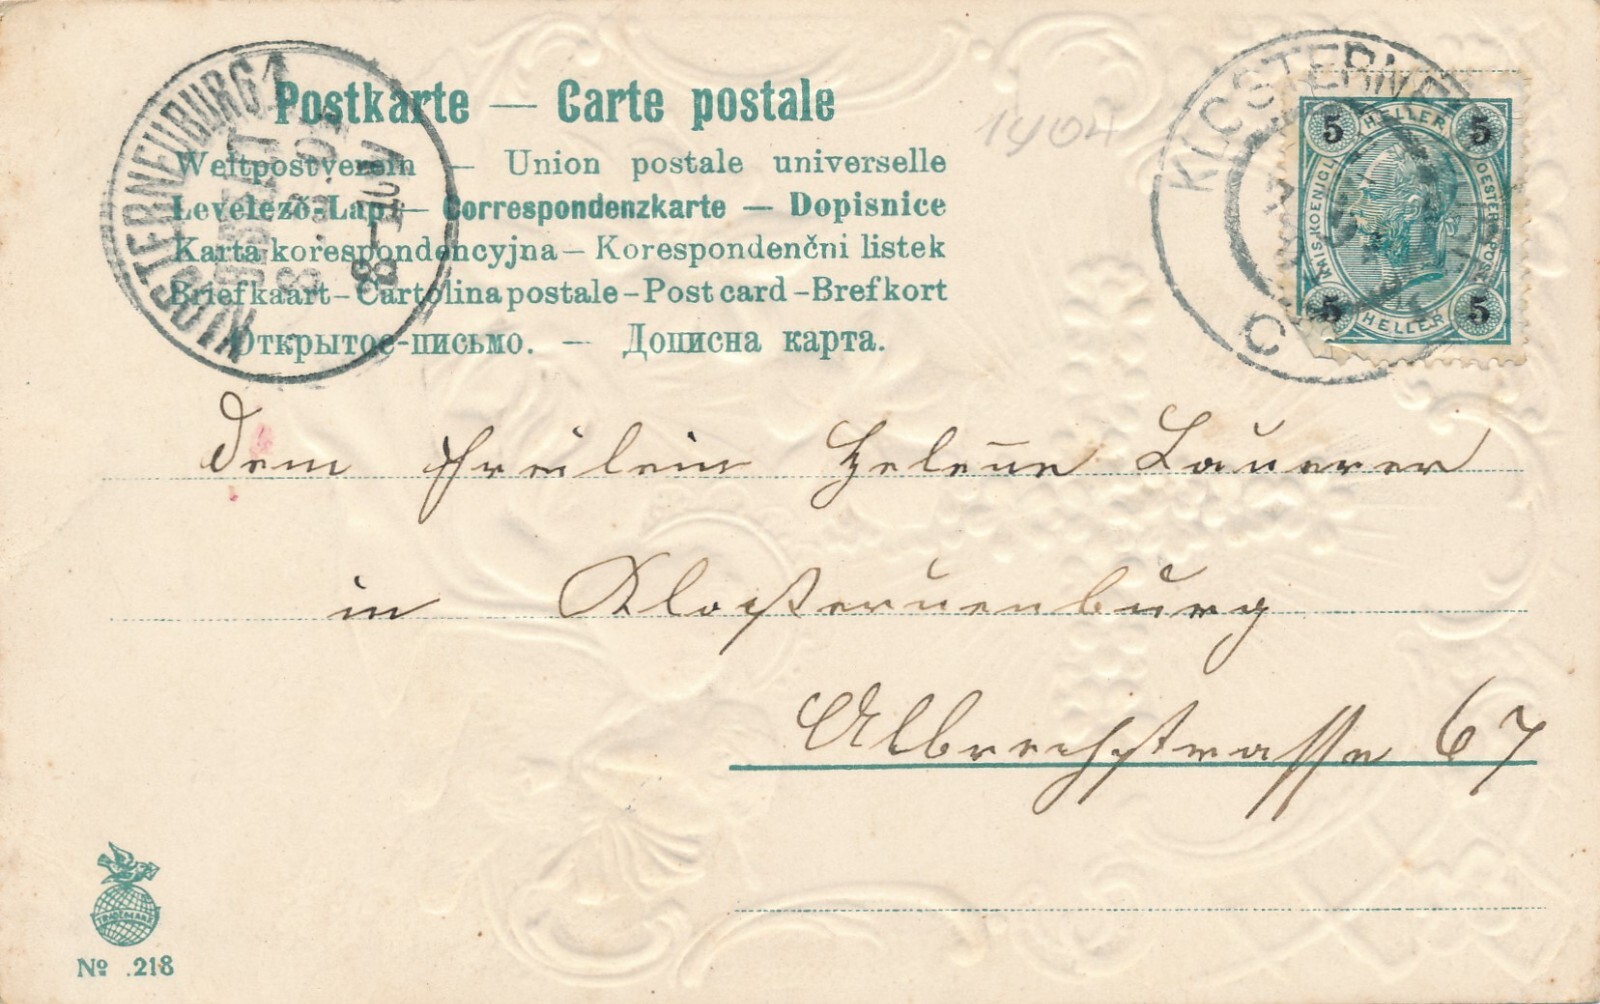 Postkarte — Carte postale
Weltpostverein — Union postale universelle
Levelező-Lap — Correspondenzkarte — Dopisnice
Karta korespondencyjna – Korespondenčni listek
Briefkaart – Cartolina postale – Post card – Brefkort
Открытое-письмо. — Дописна карта.
KLOSTERNEUBURG 1
8–10V
1904
KLOSTERNEU
C
5 HELLER 5
KAIS. KOENIGL. OESTERR. POST
5 HELLER 5
Dem Fräulein Helene Lauerer
in Klosterneuenburg
Albrechtstrasse 67
TRADE MARK
No .218